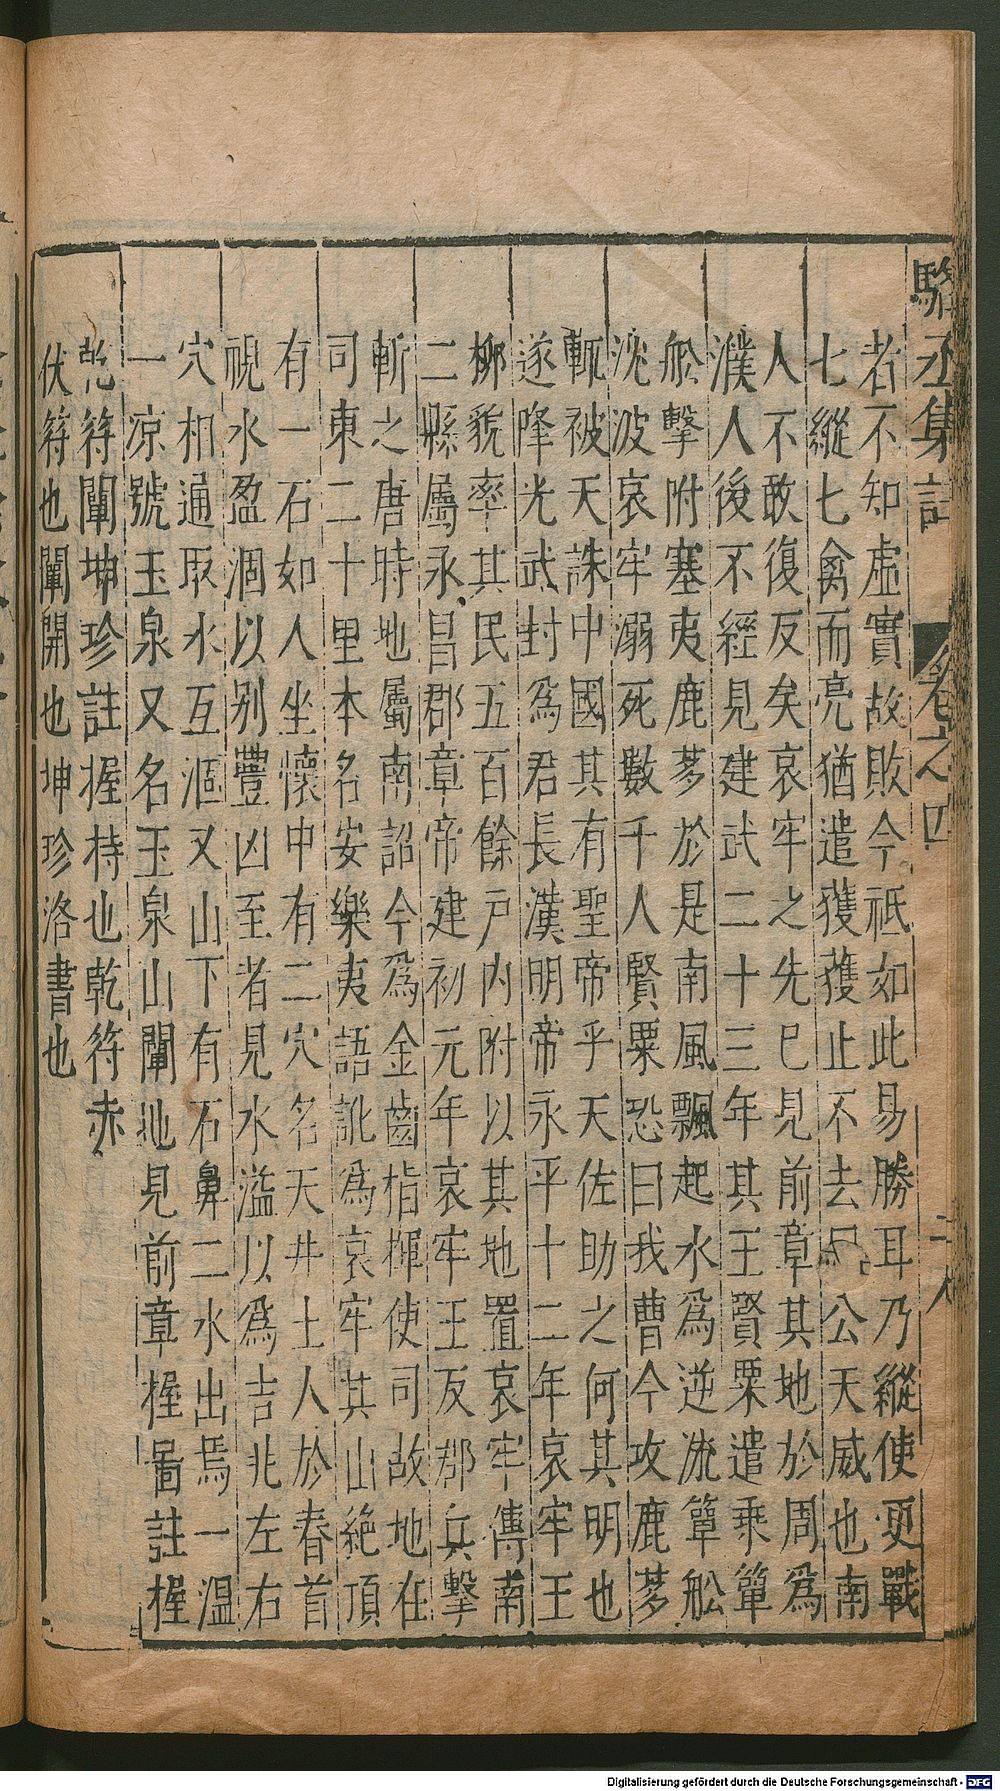 駱丞集註 卷之四
者不知虛實故敗今祗如此易勝耳乃縱使更戰
七縱七禽而亮猶遣獲獲止不去曰公天威也南
人不敢復反矣哀牢之先已見前章其地於周為
濮人後不經見建武二十三年其王賢栗遣乘箄
舩擊附塞夷鹿茤於是南風飄起水為逆流箄舩
沈波哀牢溺死數千人賢粟恐曰我曹今攻鹿茤
輒被天誅中國其有聖帝乎天佐助之何其明也
遂降光武封為君長漢明帝永平十二年哀牢王
柳貌率其民五百餘戸內附以其地置哀牢傳南
二縣屬永昌郡章帝建初元年哀牢王反郡兵擊
斬之唐時地屬南詔今為金齒指揮使司故地在
司東二十里本名安樂夷語訛為哀牢其山絶頂
有一石如人坐懷中有二穴名天井土人於春首
視水盈涸以别豐凶至者見水溢以為吉兆左右
穴相通取水互涸又山下有石鼻二水出焉一温
一凉號玉泉又名玉泉山闡地見前章握圖註握
乾符闡坤珍註握持也乾符赤
伏符也闡開也坤珍洛書也
Digitalisierung gefördert durch die Deutsche Forschungsgemeinschaft - DFG